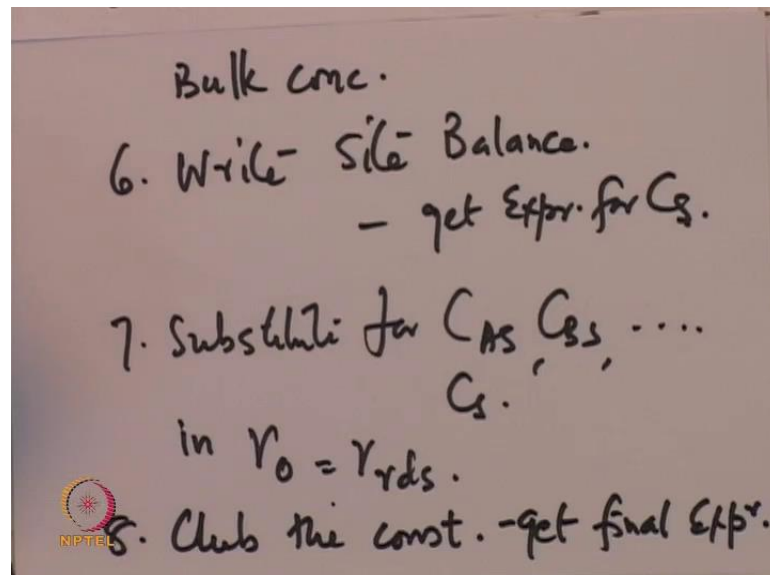 Bulk conc.
6. Write Site Balance.
- get Expr. for Cs.
7. Substitute for CAS, CBS, ....
Cs.
in r0 = rrds.
8. Club the const. - get final Expr.
NPTEL